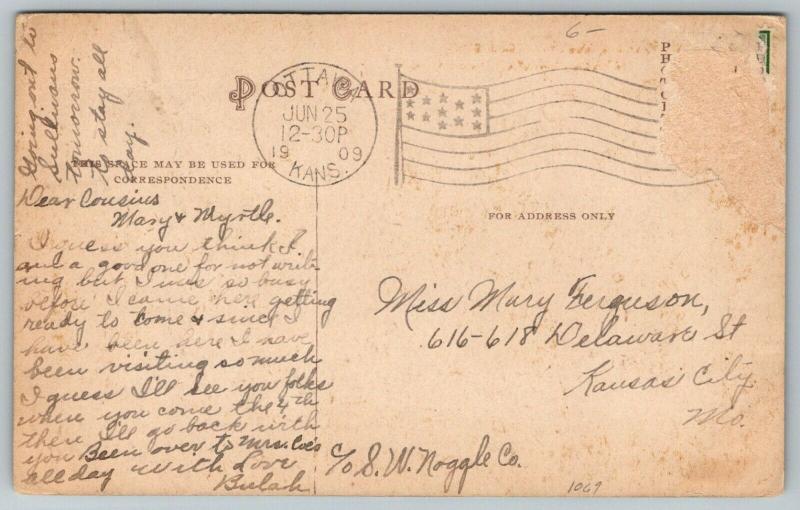 6-
Going out to
Sullivans
tomorrow
to stay all
day.
POST CARD
OTTAWA
JUN 25
12-30P
1909
KANS.
THIS SPACE MAY BE USED FOR
CORRESPONDENCE
FOR ADDRESS ONLY
Dear Cousins
Mary & Myrtle.
I guess you think I
am a good one for not writ
ing but I was so busy
before I came here getting
ready to come & since I
have been here I have
been visiting so much
I guess I'll see you folks
when you come the 4th
then I'll go back with
you Been over to Mrs. Coe's
all day with Love
Beulah
Miss Mary Ferguson,
616-618 Delaware St
Kansas City
Mo.
c/o S. W. Noggle Co.
1069